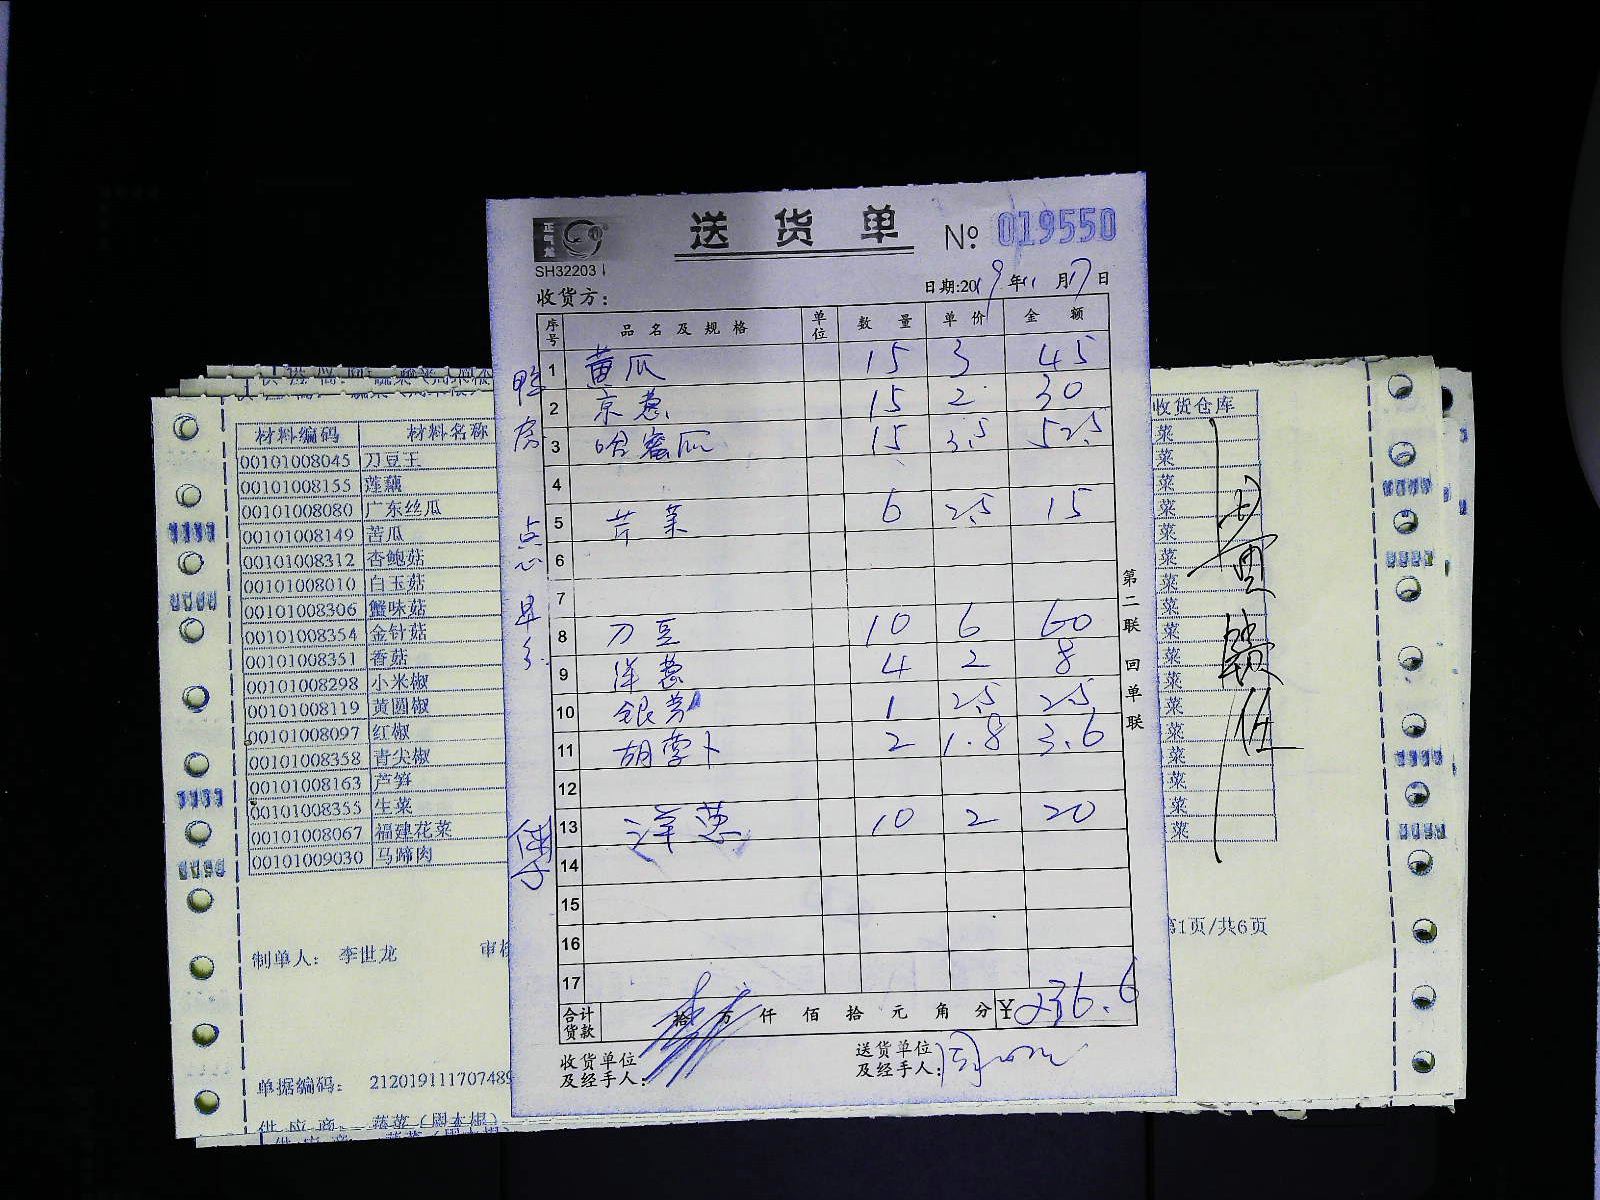 送货单 № 019550
正气龙
SH32203
日期:2019年11月17日
收货方:
序号 品名及规格 单位 数量 单价 金额
鸭房
1 黄瓜 15 3 45
2 京葱 15 2 30
3 哈蜜瓜 15 3.5 52.5
4
点心
5 芹菜 6 2.5 15
6
7
8 刀豆 10 6 60
9 洋葱 4 2 8
10 银芽 1 2.5 2.5
11 胡萝卜 2 1.8 3.6
12
13 洋葱 10 2 20
14
15
16
17
合计货款 拾 万 仟 佰 拾 元 角 分 ¥236.6
收货单位及经手人:
送货单位及经手人:
第二联 回单联
材料编码 材料名称
00101008045 刀豆王
00101008155 莲藕
00101008080 广东丝瓜
00101008149 苦瓜
00101008312 杏鲍菇
00101008010 白玉菇
00101008306 蟹味菇
00101008354 金针菇
00101008351 香菇
00101008298 小米椒
00101008119 黄圆椒
00101008097 红椒
00101008358 青尖椒
00101008163 芦笋
00101008355 生菜
00101008067 福建花菜
00101009030 马蹄肉
制单人: 李世龙
单据编码: 212019111707489
供应商:
收货仓库
菜
菜
菜
菜
菜
菜
菜
菜
菜
菜
菜
菜
菜
菜
菜
菜
菜
第1页/共6页